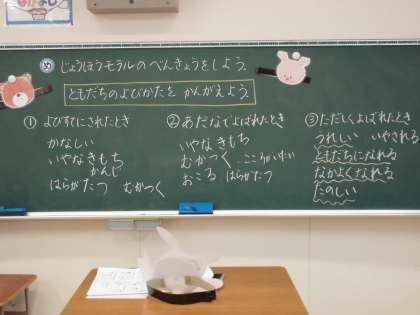 め じょうほうモラルのべんきょうをしよう。
ともだちのよびかたを かんがえよう。
① よびすてにされたとき
かなしい
いやなきもち
かんじ
はらがたつ むかつく
② あだなでよばれたとき
いやなきもち
むかつく こころがいたい
おこる はらがたつ
③ ただしくよばれたとき
うれしい いやされる
ともだちになれる
なかよくなれる
たのしい